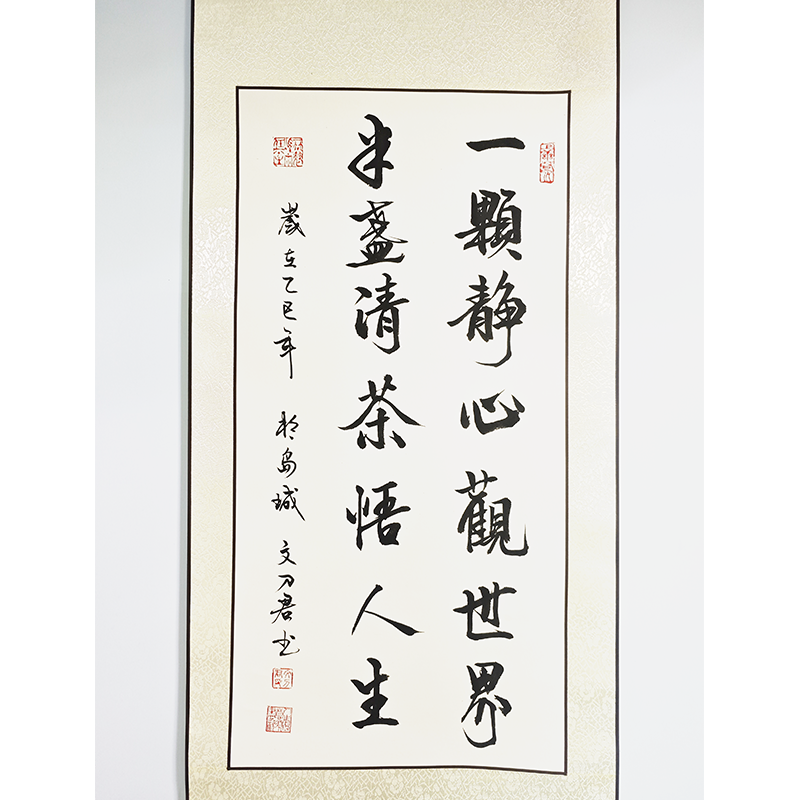 一顆靜心觀世界
半盞清茶悟人生
歲在乙巳年 於島城 文刀君书